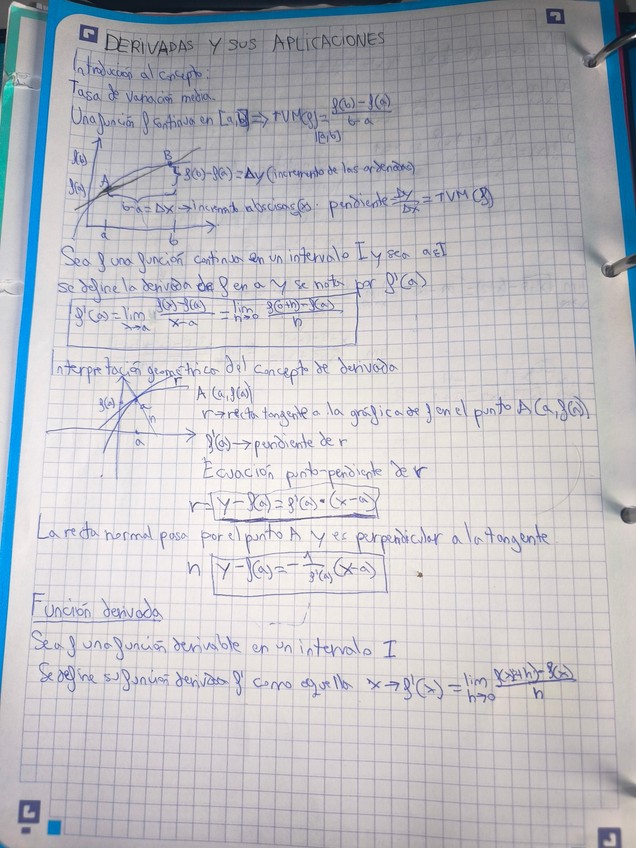 DERIVADAS Y SUS APLICACIONES
Introducion al concepto.
Tasa de variación media.
Una función f continua en [a,b] => TVM(f) = f(b)-f(a) / b-a
[a,b]
f(b)
B
f(b)-f(a) = Δy (incremento de las ordenadas)
f(a)
A
b-a = Δx → Incremento abscisas(x). pendiente Δy/Δx = TVM(f)
a
b
Sea f una función continua en un intervalo I y sea a∈I
se define la derivada de f en a y se nota por f'(a)
f'(a) = lim x→a f(x)-f(a) / x-a = lim h→0 f(a+h)-f(a) / h
Interpretación geométrica del concepto de derivada
r
A (a, f(a))
f(a)
a
n
r → recta tangente a la gráfica de f en el punto A (a, f(a))
a
f'(a) → pendiente de r
Ecuación punto-pendiente de r
r = y - f(a) = f'(a) · (x-a)
La recta normal pasa por el punto A y es perpendicular a la tangente
n y - f(a) = - 1/f'(a) (x-a)
Función derivada
Sea f una función derivable en un intervalo I
Se define su función derivada f' como aquella x → f'(x) = lim h→0 f(x+h)-f(x) / h